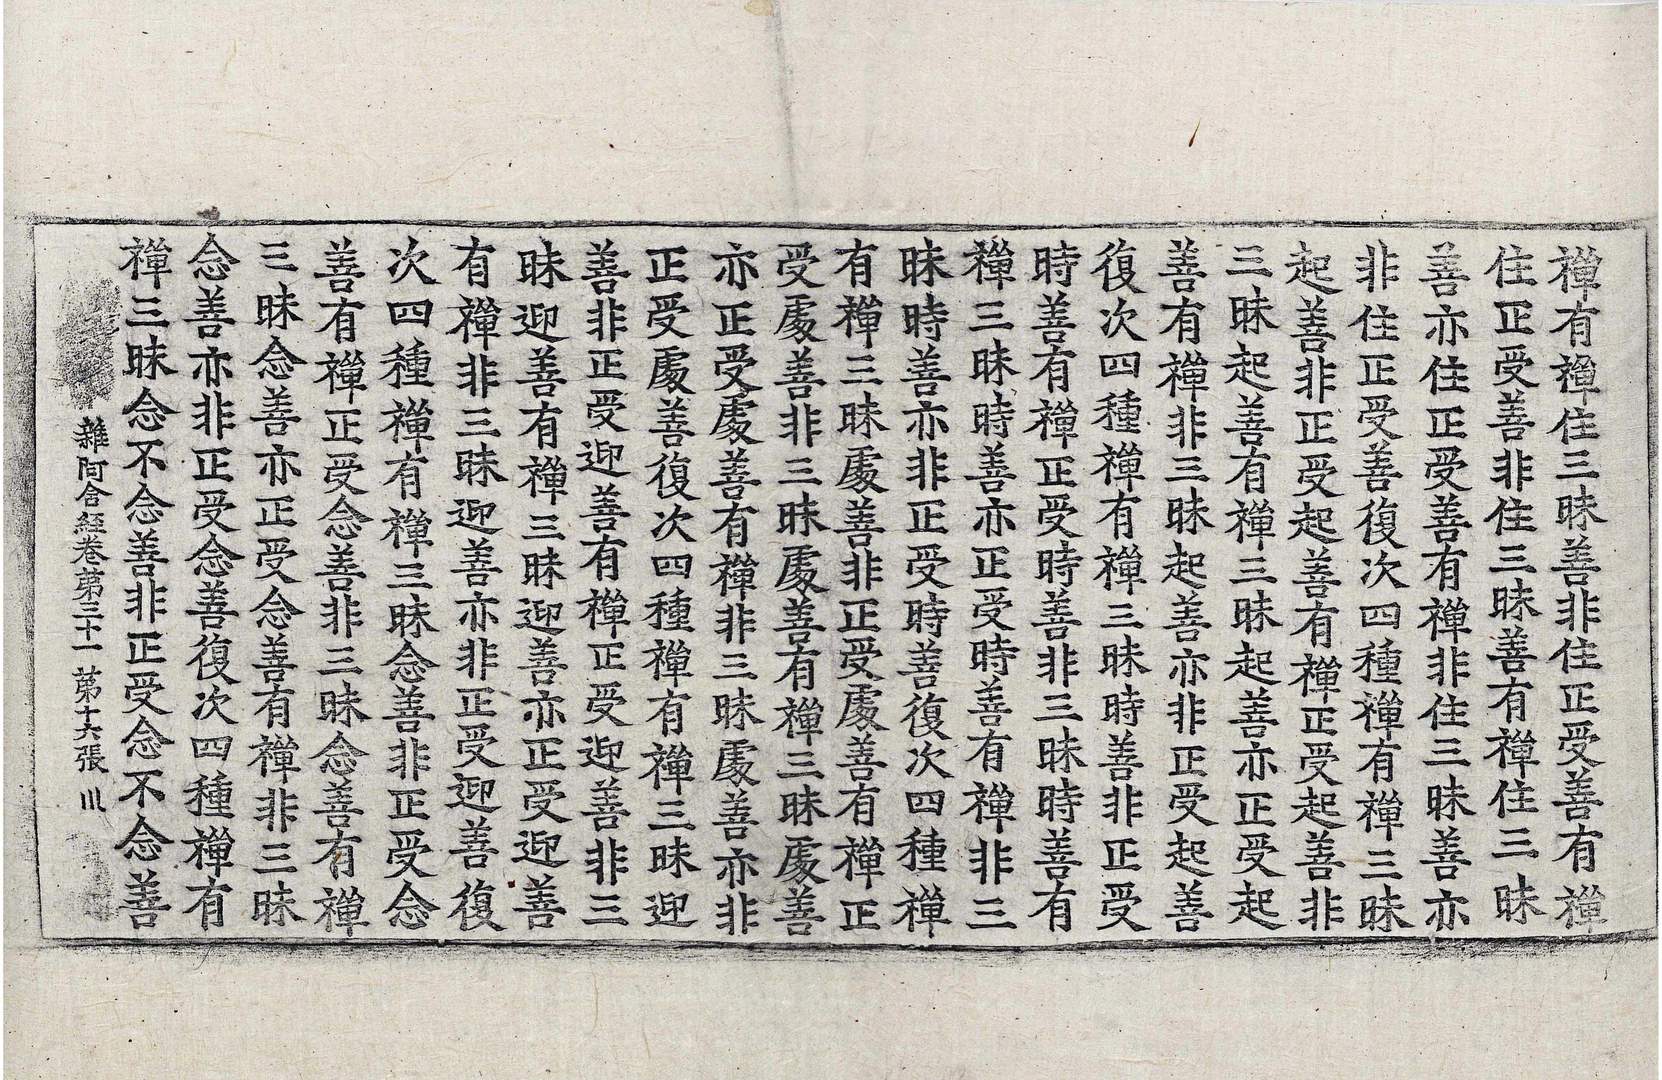 禪有禪住三昧善非住正受善有禪
住正受善非住三昧善有禪住三昧
善亦住正受善有禪非住三昧善亦
非住正受善復次四種禪有禪三昧
起善非正受起善有禪正受起善非
三昧起善有禪三昧起善亦正受起
善有禪非三昧起善亦非正受起善
復次四種禪有禪三昧時善非正受
時善有禪正受時善非三昧時善有
禪三昧時善亦正受時善有禪非三
昧時善亦非正受時善復次四種禪
有禪三昧處善非正受處善有禪正
受處善非三昧處善有禪三昧處善
亦正受處善有禪非三昧處善亦非
正受處善復次四種禪有禪三昧迎
善非正受迎善有禪正受迎善非三
昧迎善有禪三昧迎善亦正受迎善
有禪非三昧迎善亦非正受迎善復
次四種禪有禪三昧念善非正受念
善有禪正受念善非三昧念善有禪
三昧念善亦正受念善有禪非三昧
念善亦非正受念善復次四種禪有
禪三昧念不念善非正受念不念善
雜阿含經卷第三十一 第十六張 川